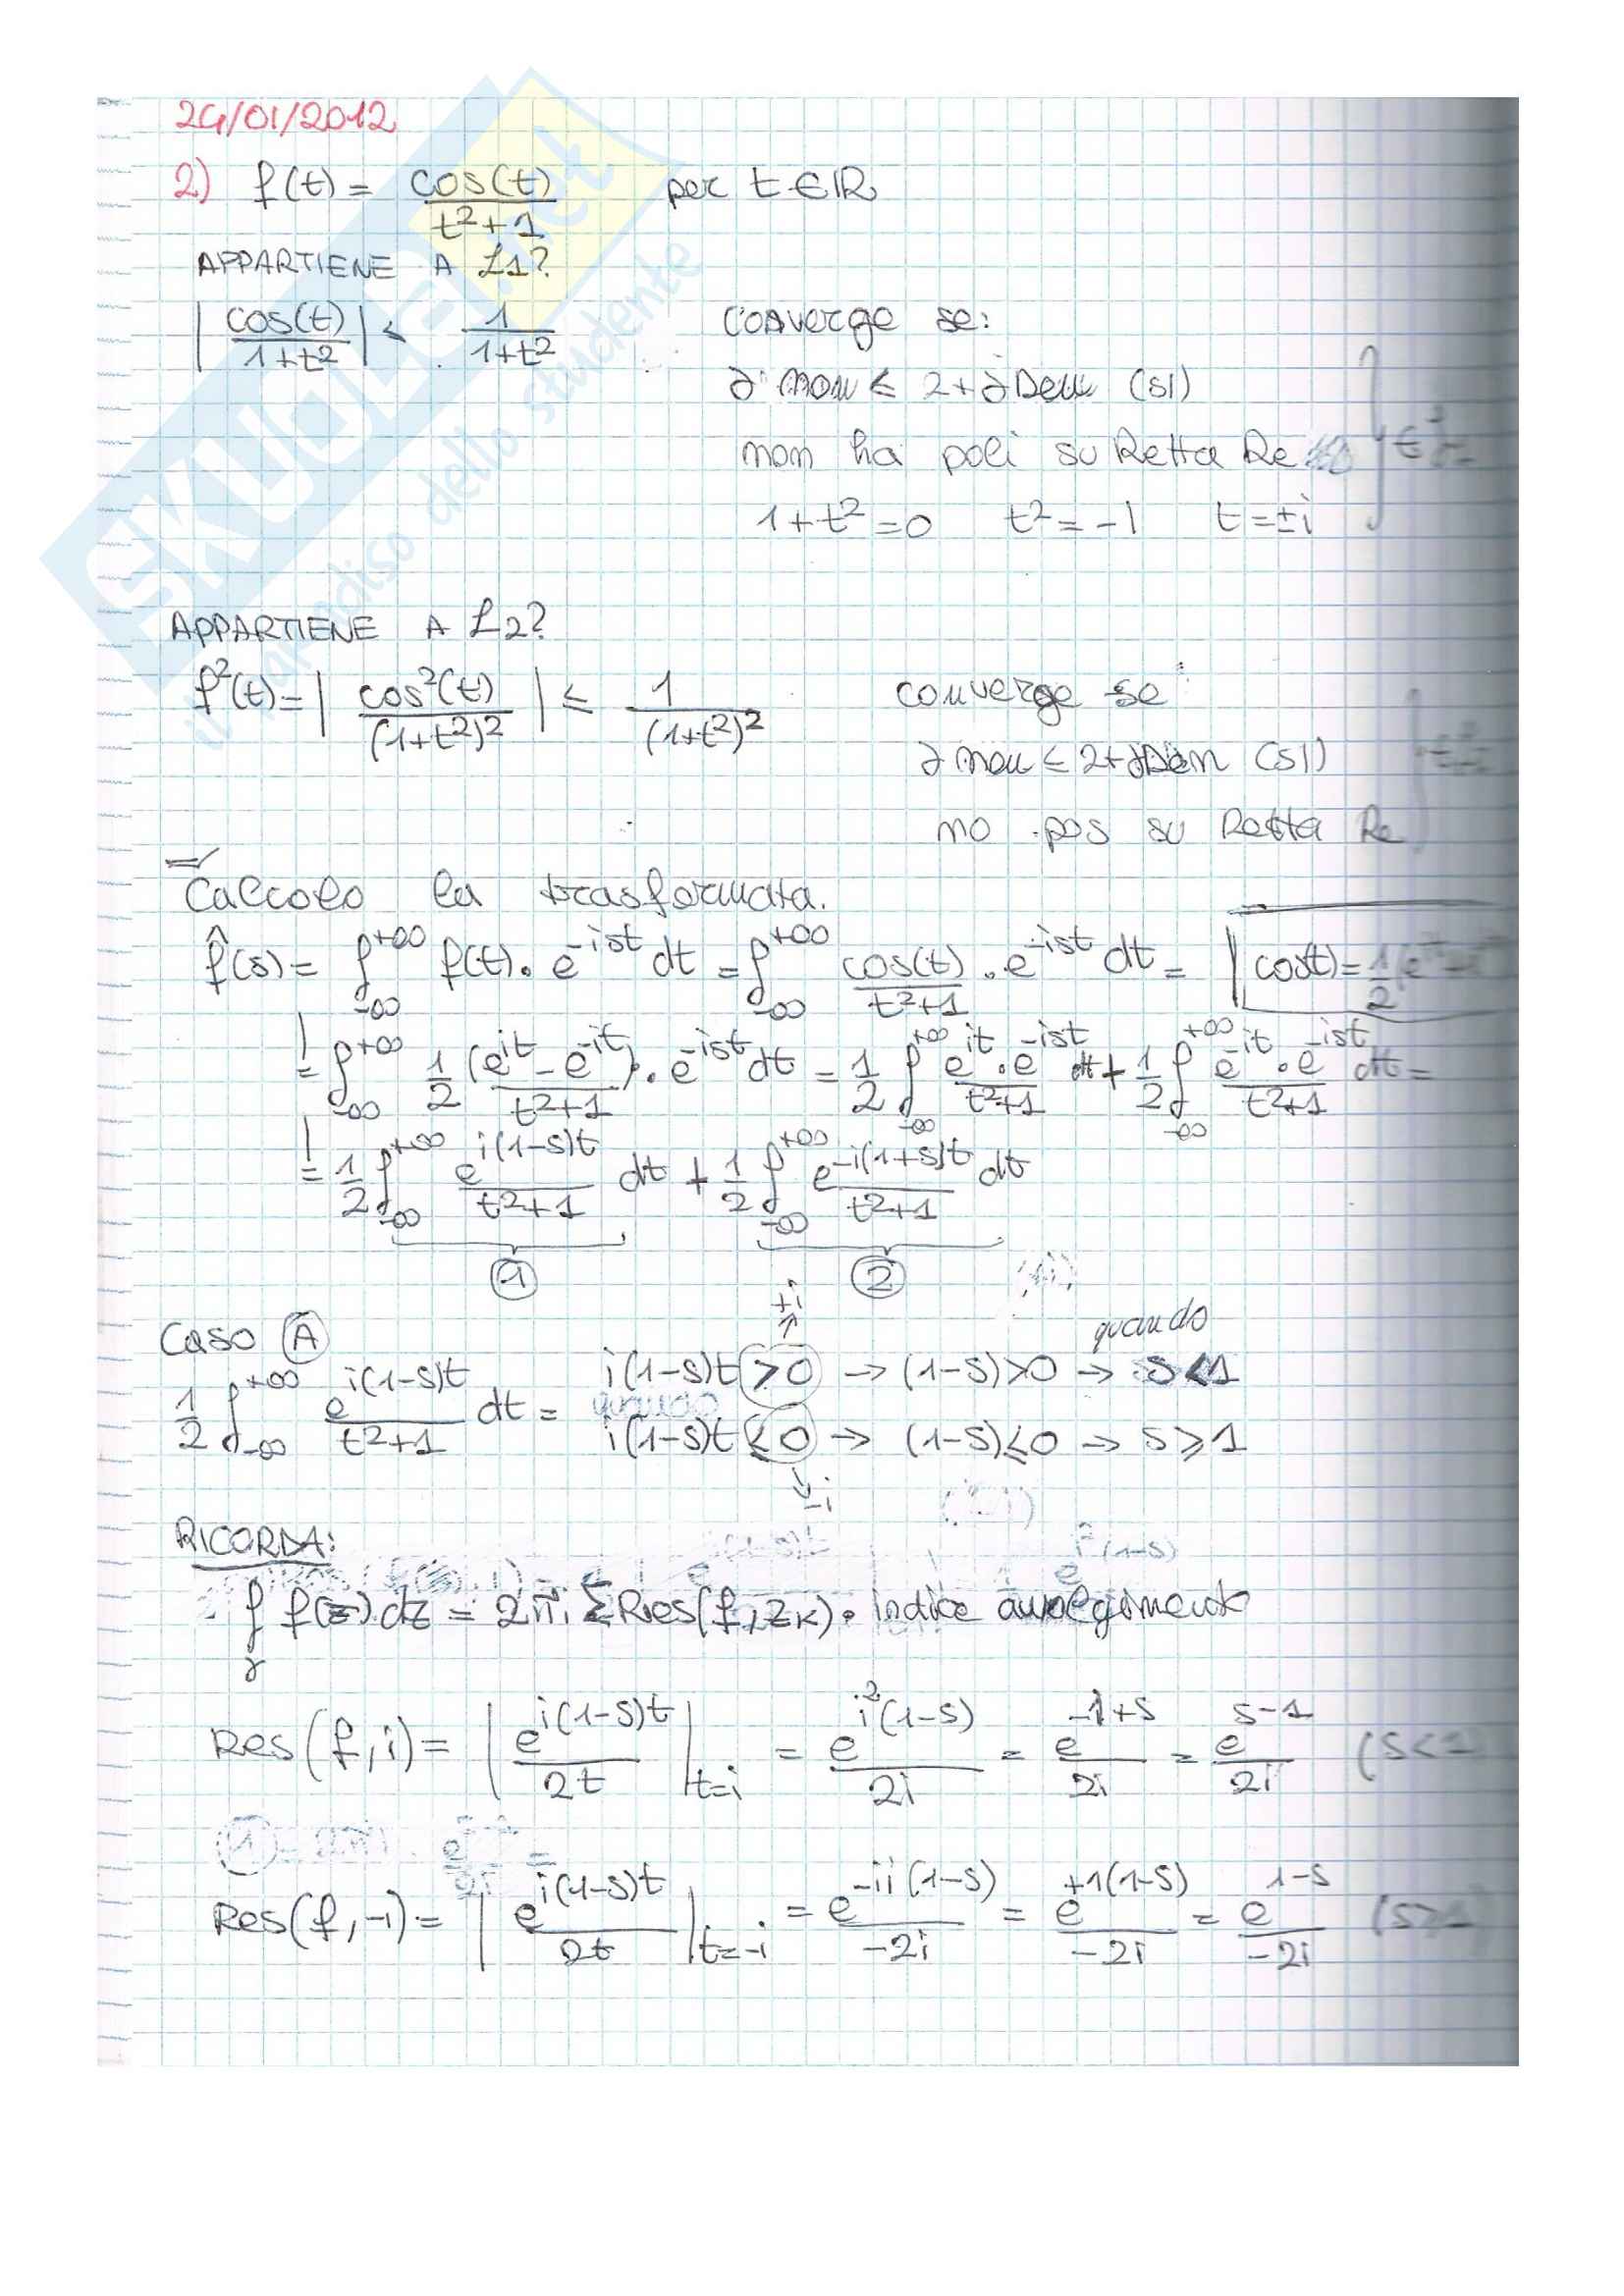 24/01/2012
2) f(t) = cos(t)/(t²+1) per t ∈ ℝ
APPARTIENE A L1?
|cos(t)/(1+t²)| ≤ 1/(1+t²) converge se:
∂ num ≤ 2+∂Den (SI)
non ha poli su Retta Re
1+t²=0 t²=-1 t=±i
APPARTIENE A L2?
f²(t)=|cos²(t)/(1+t²)²| ≤ 1/(1+t²)² converge se
∂ num ≤ 2+∂Den (SI)
no pos su Retta Re
Calcolo la trasformata.
f̂(s) = ∫_{-∞}^{+∞} f(t)·e^{-ist} dt = ∫_{-∞}^{+∞} cos(t)/(t²+1) ·e^{-ist} dt = cos(t)=1/2
= ∫_{-∞}^{+∞} 1/2 (e^{it} - e^{-it})/(t²+1) · e^{-ist} dt = 1/2 ∫_{-∞}^{+∞} e^{it}·e^{-ist}/(t²+1) dt + 1/2 ∫_{-∞}^{+∞} e^{-it}·e^{-ist}/(t²+1) dt =
= 1/2 ∫_{-∞}^{+∞} e^{i(1-s)t}/(t²+1) dt + 1/2 ∫_{-∞}^{+∞} e^{-i(1+s)t}/(t²+1) dt
1 2
+i
Caso A quando
1/2 ∫_{-∞}^{+∞} e^{i(1-s)t}/(t²+1) dt = i(1-s)t >0 → (1-s)>0 → s<1
quando i(1-s)t ≤0 → (1-s)≤0 → s≥1
-i
RICORDA:
∫_γ f(z) dz = 2πi Σ Res(f, z_k) · indice avvolgimento
Res(f,i) = |e^{i(1-s)t}/2t|_{t=i} = e^{i²(1-s)}/2i = e^{-1+s}/2i = e^{s-1}/2i (s<1
Res(f,-i) = |e^{i(1-s)t}/2t|_{t=-i} = e^{-ii(1-s)}/-2i = e^{+1(1-s)}/-2i = e^{1-s}/-2i (s≥1
SKUOLA.net
il paradiso dello studente